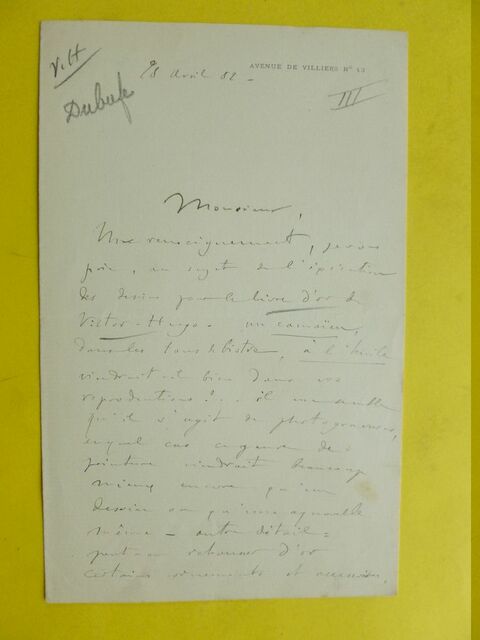 V. H
Dubufe
AVENUE DE VILLIERS Nº 43
28 avril 82 -
III
Monsieur,
Un renseignement, je vous
prie, au sujet de l'exécution
des dessins pour le livre d'or de
Victor-Hugo - un camaïeu,
dans les tons de bistre, à l'huile
viendrait-il bien dans vos
reproductions ?.. il me semble
qu'il s'agit de photogravures,
auquel cas ce genre de
peinture viendrait beaucoup
mieux encore qu'un
dessin ou qu'une aquarelle
même - autre détail =
peut-on rehausser d'or
certains ornements et